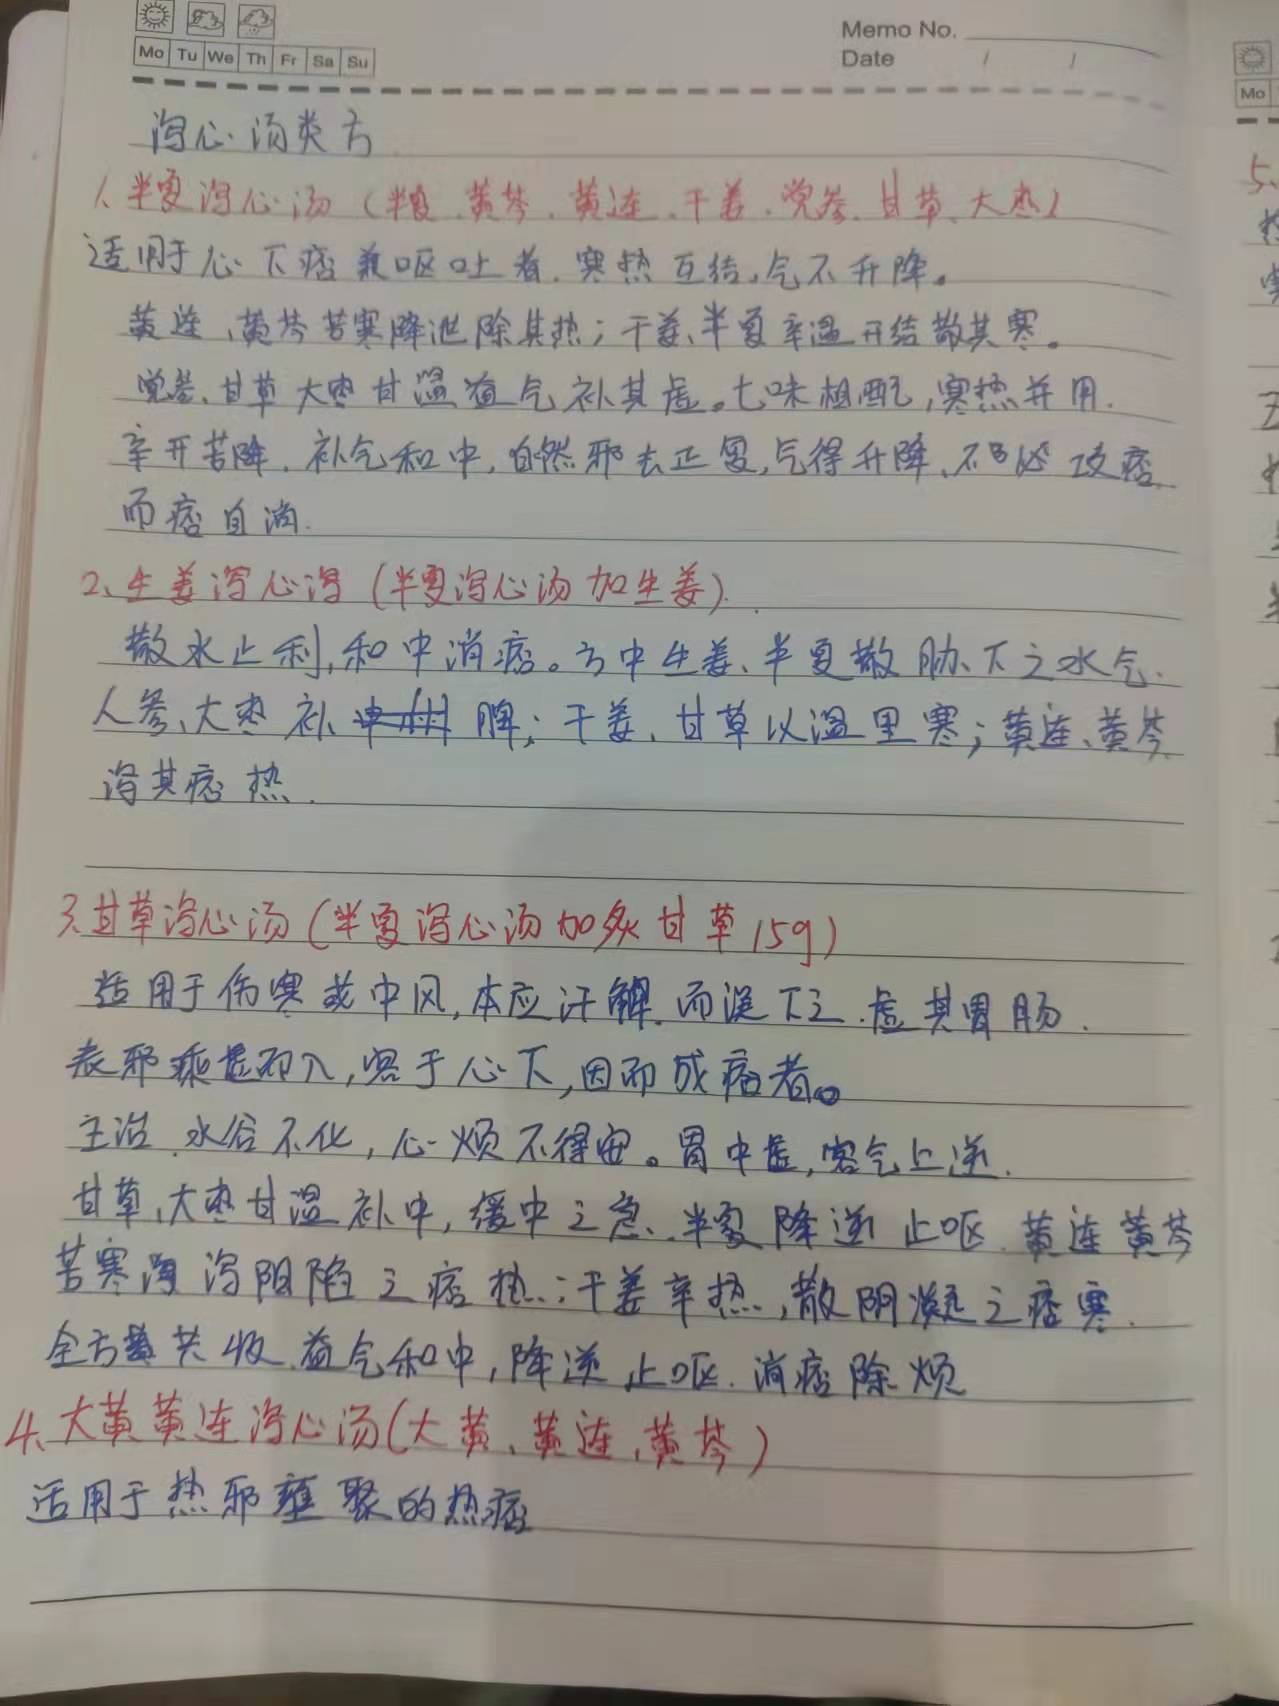 Memo No.
Mo Tu We Th Fr Sa Su
Date / /
Mo
泻心汤类方
1、半夏泻心汤（半夏、黄芩、黄连、干姜、党参、甘草、大枣）
适用于心下痞兼呕吐者，寒热互结，气不升降。
黄连、黄芩苦寒降泄除其热；干姜、半夏辛温开结散其寒。
党参、甘草大枣甘温益气补其虚。七味相配，寒热并用.
辛开苦降、补气和中，自然邪去正复，气得升降、不必攻痞
而痞自消.
2、生姜泻心泻（半夏泻心汤加生姜）.
散水止利，和中消痞。方中生姜、半夏散胁下之水气.
人参、大枣补脾；干姜、甘草以温里寒；黄连、黄芩
泻其痞热.
3.甘草泻心汤（半夏泻心汤加炙甘草15g）
适用于伤寒或中风，本应汗解，而误下之.虚其胃肠.
表邪乘虚而入，客于心下，因而成痞者。
主治水谷不化，心烦不得安。胃中虚，客气上逆.
甘草、大枣甘温补中，缓中之急、半夏降逆止呕.黄连黄芩
苦寒泻阳陷之痞热；干姜辛热，散阴凝之痞寒.
全方共收益气和中，降逆止呕.消痞除烦
4、大黄黄连泻心汤（大黄、黄连、黄芩）
适用于热邪壅聚的热痞
5、